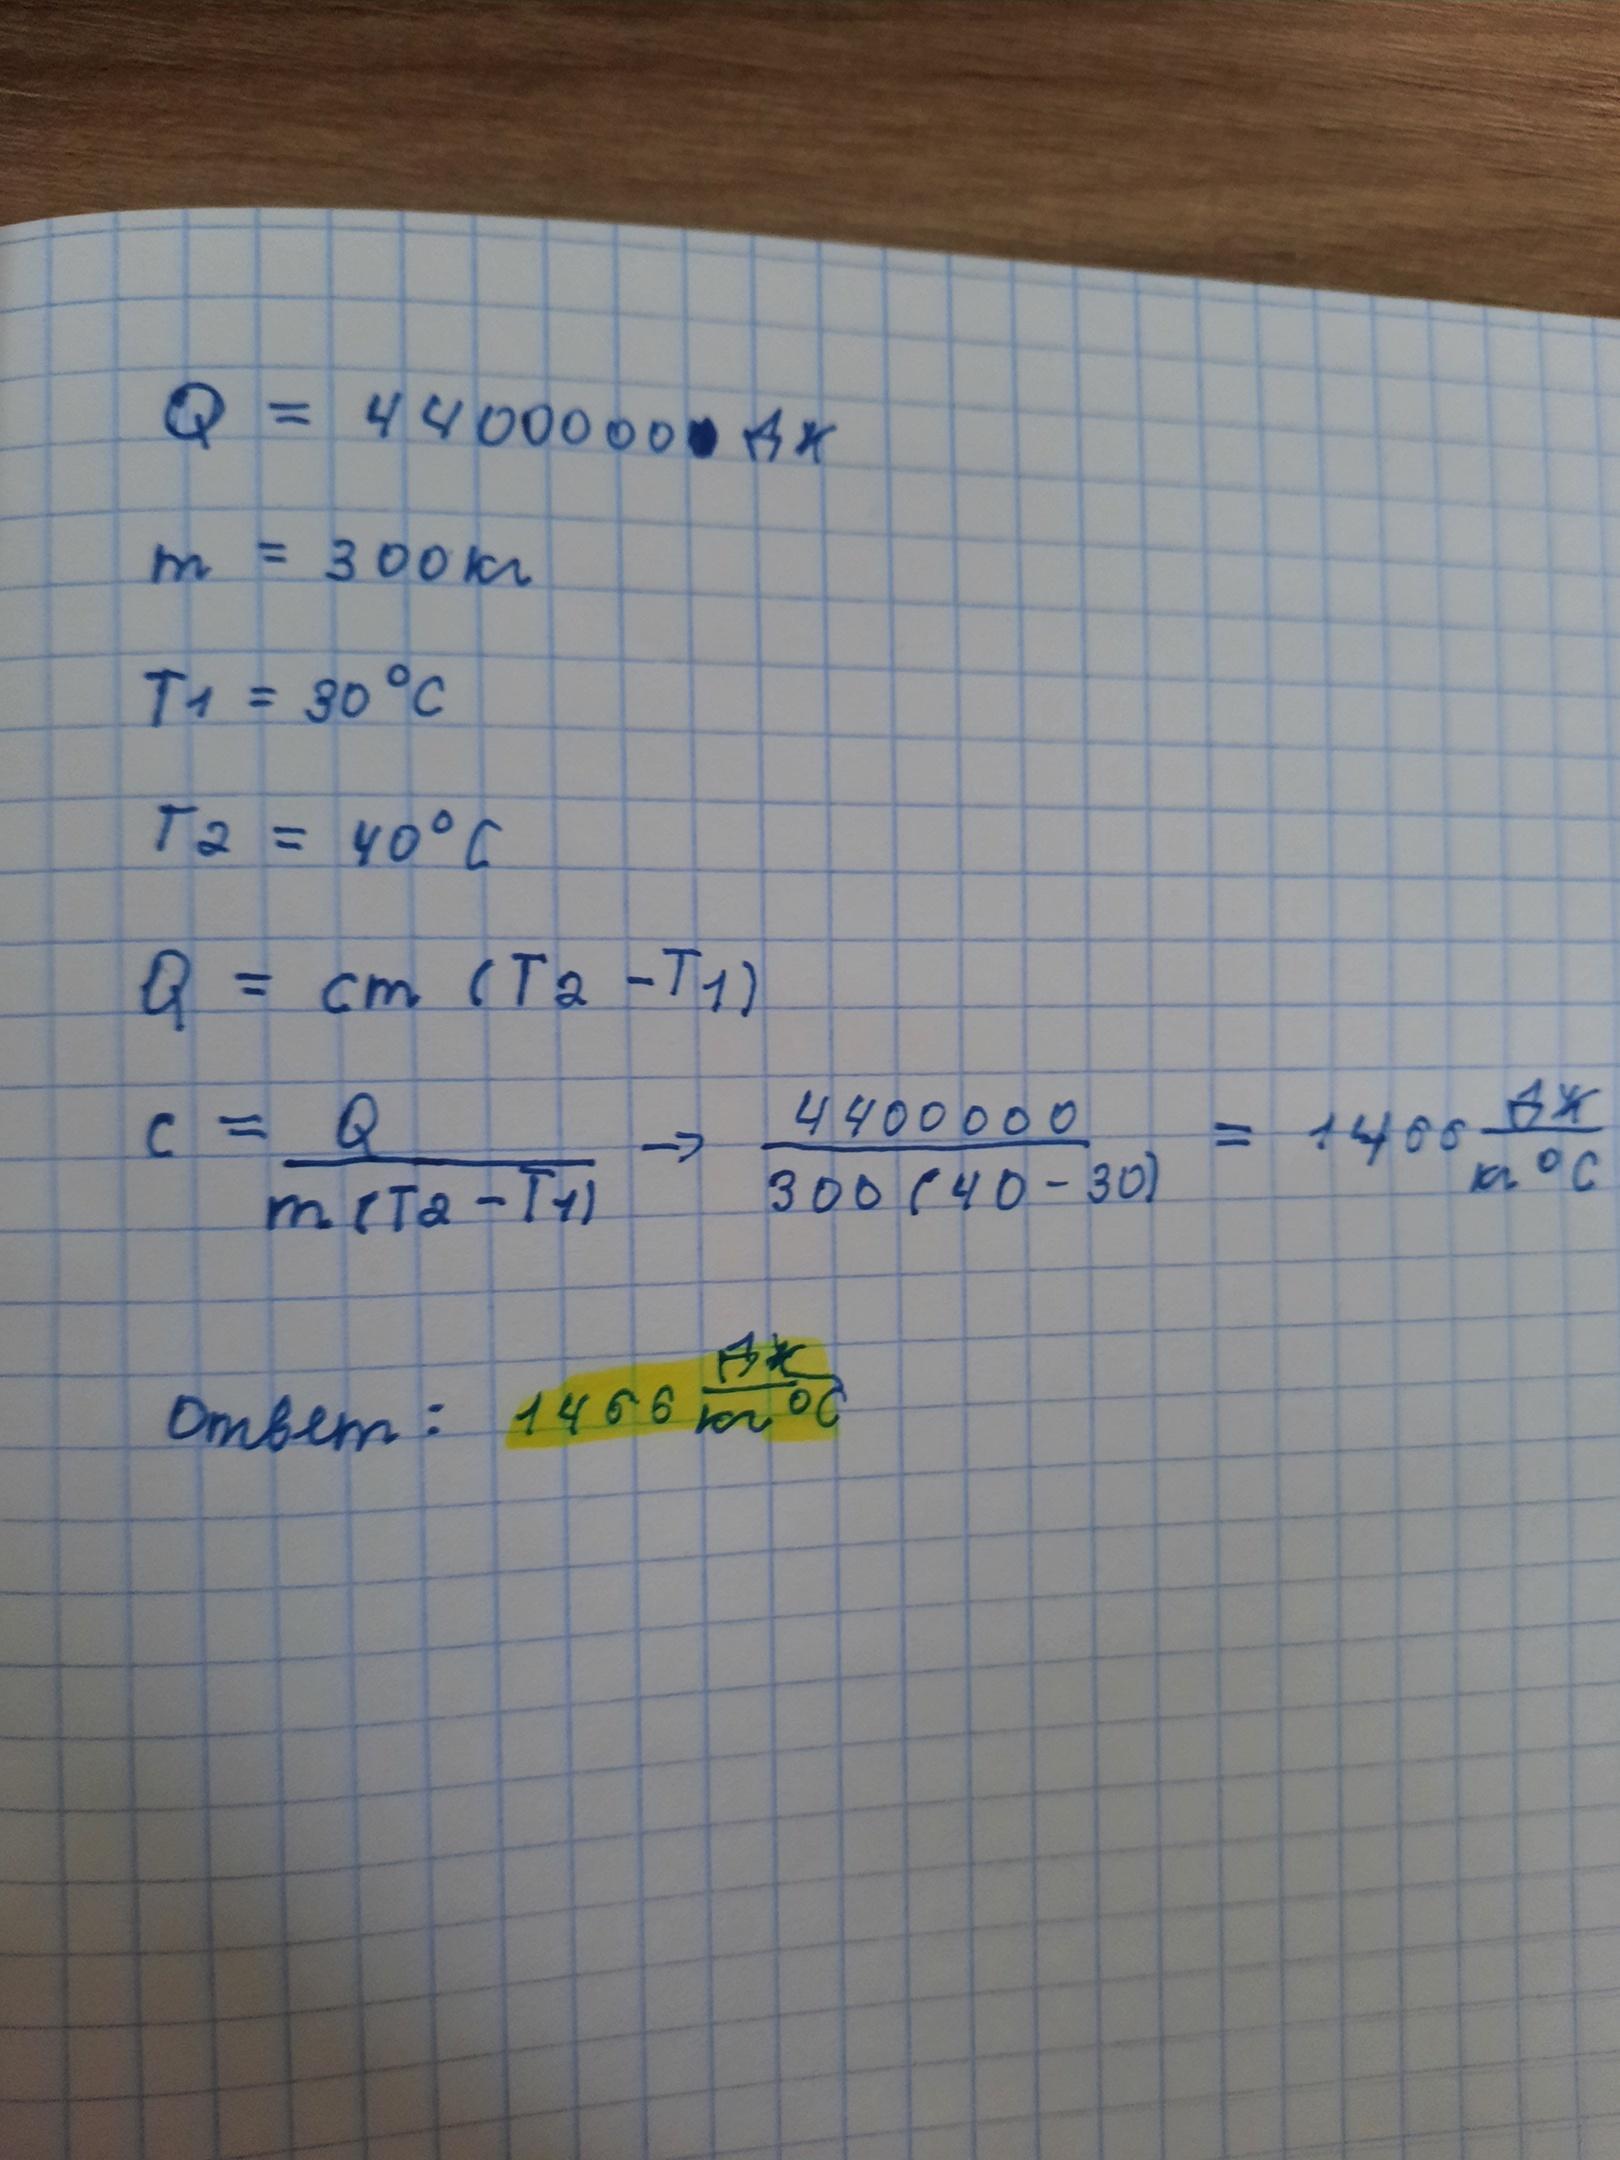 Q = 4400000 Дж
m = 300 кг
T1 = 30°C
T2 = 40°C
Q = cm (T2 - T1)
c = Q / m(T2 - T1) → 4400000 / 300(40 - 30) = 1466 Дж / кг°C
Ответ: 1466 Дж / кг°C